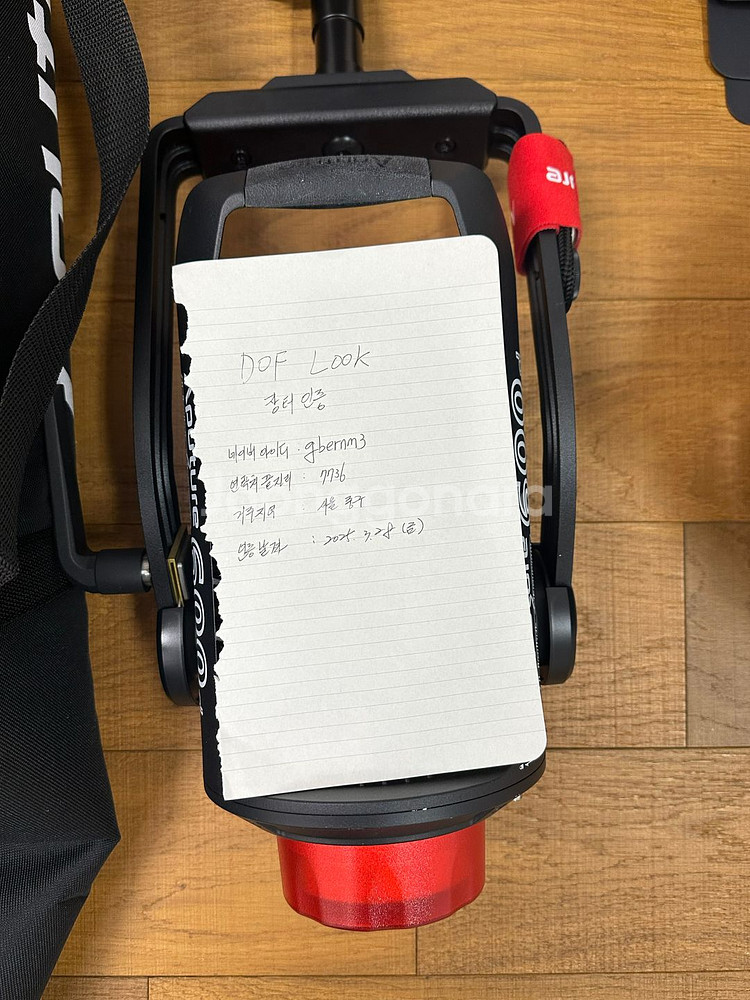 DOF Look
장터 인증
네이버 아이디 : gbernm3
연락처 끝자리 : 7736
거주지역 서울 중구
인증날짜 : 2025. 3. 28 (금)
Aputure 600